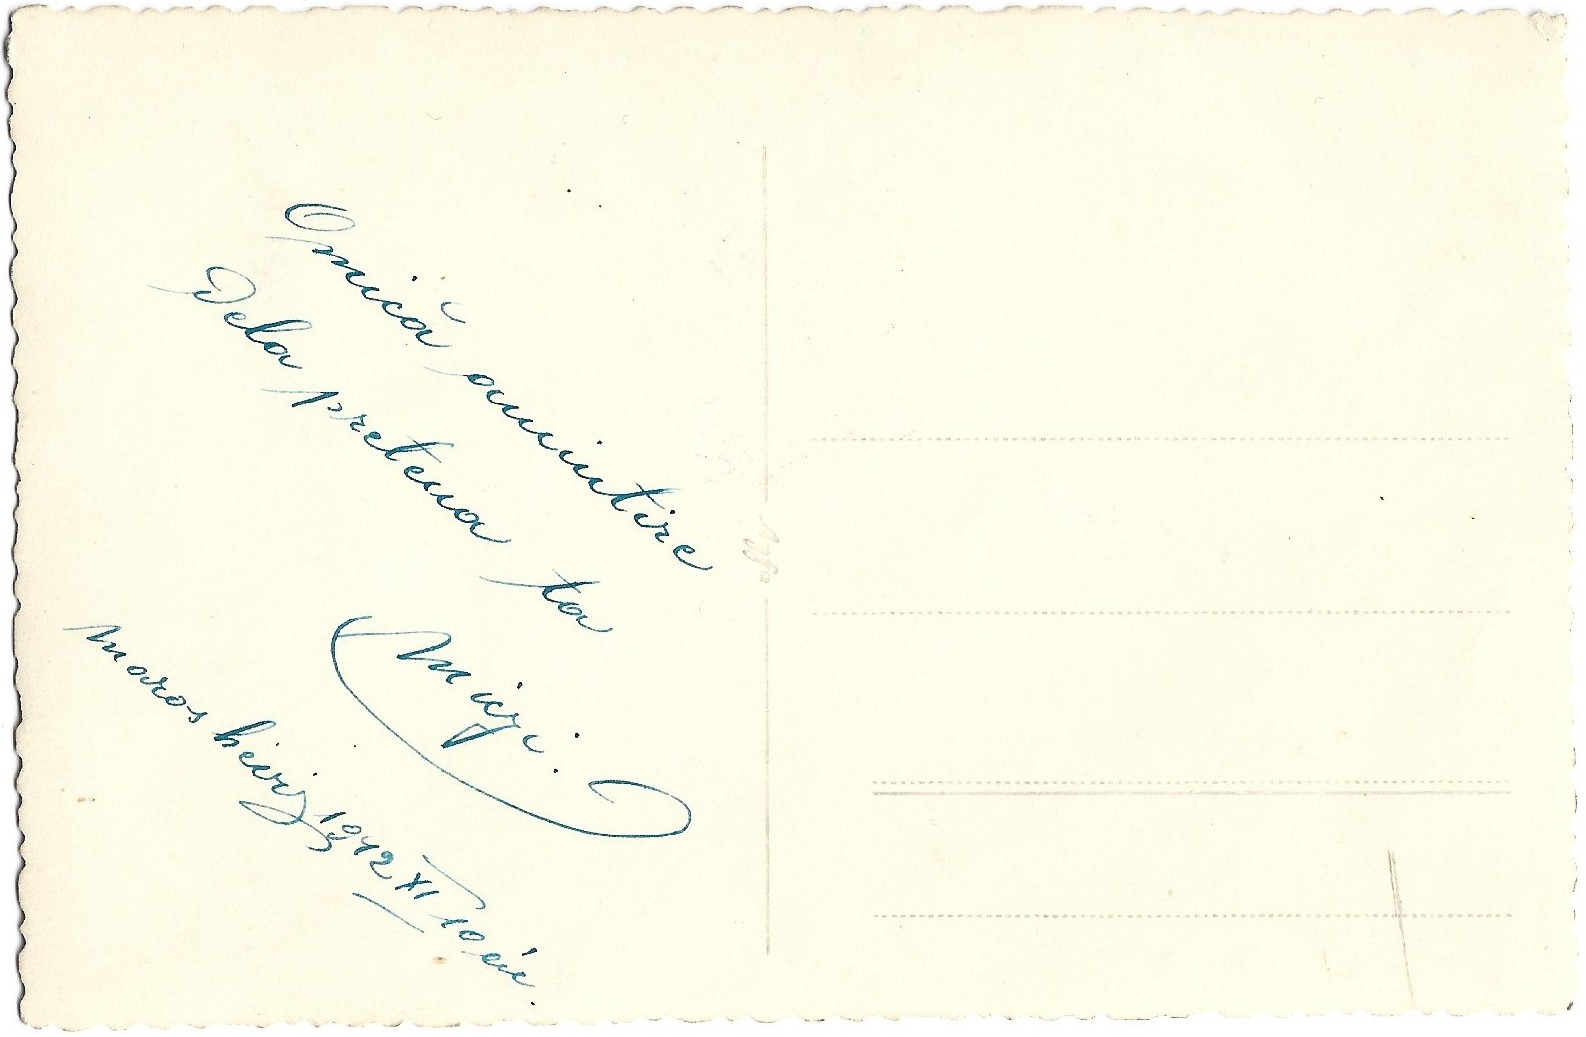 O mică amintire
Dela pretena ta
Mizi.
Maroshévíz 1942 XI 10 én.